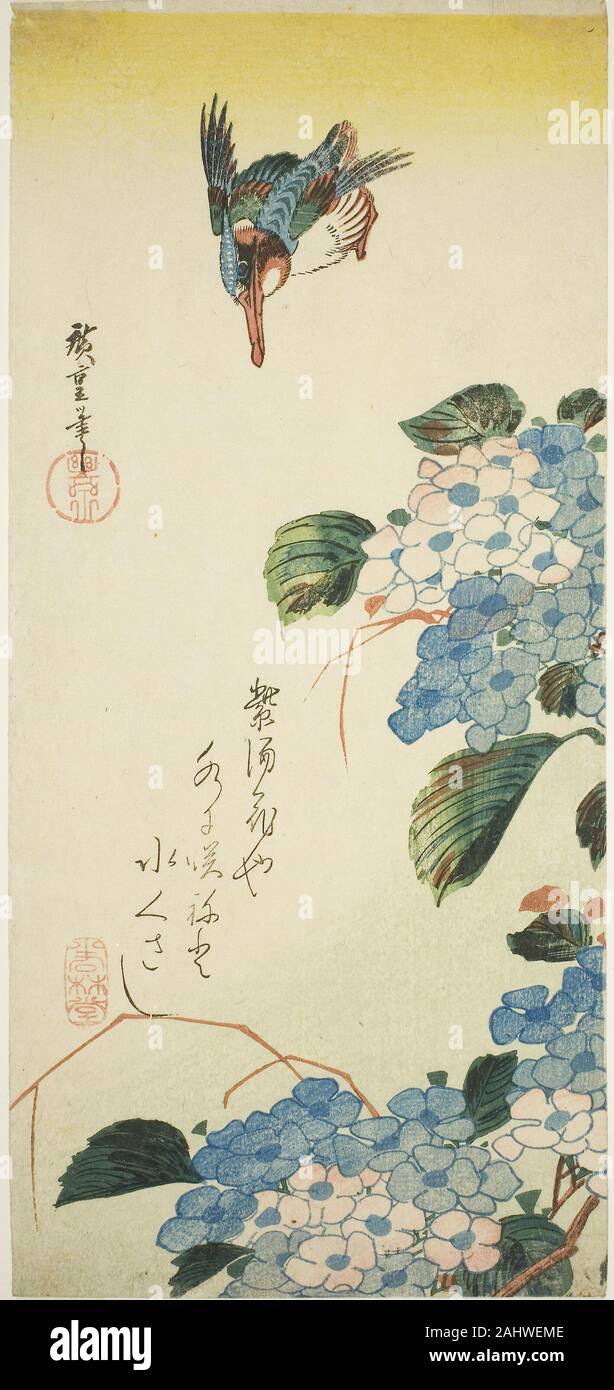 廣重筆
紫陽花や
水に咲ねと
水くさし
alamy
alamy
Image ID: 2AHWEME
www.alamy.com